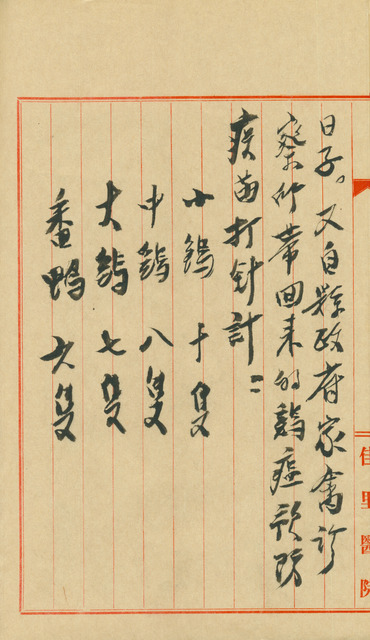 日子。又自縣政府家禽診
察所帶回來的鷄瘟預防
疫苗打針計：
小鷄 十隻
中鷄 八隻
大鷄 七隻
番鴨 六隻
佳里醫院